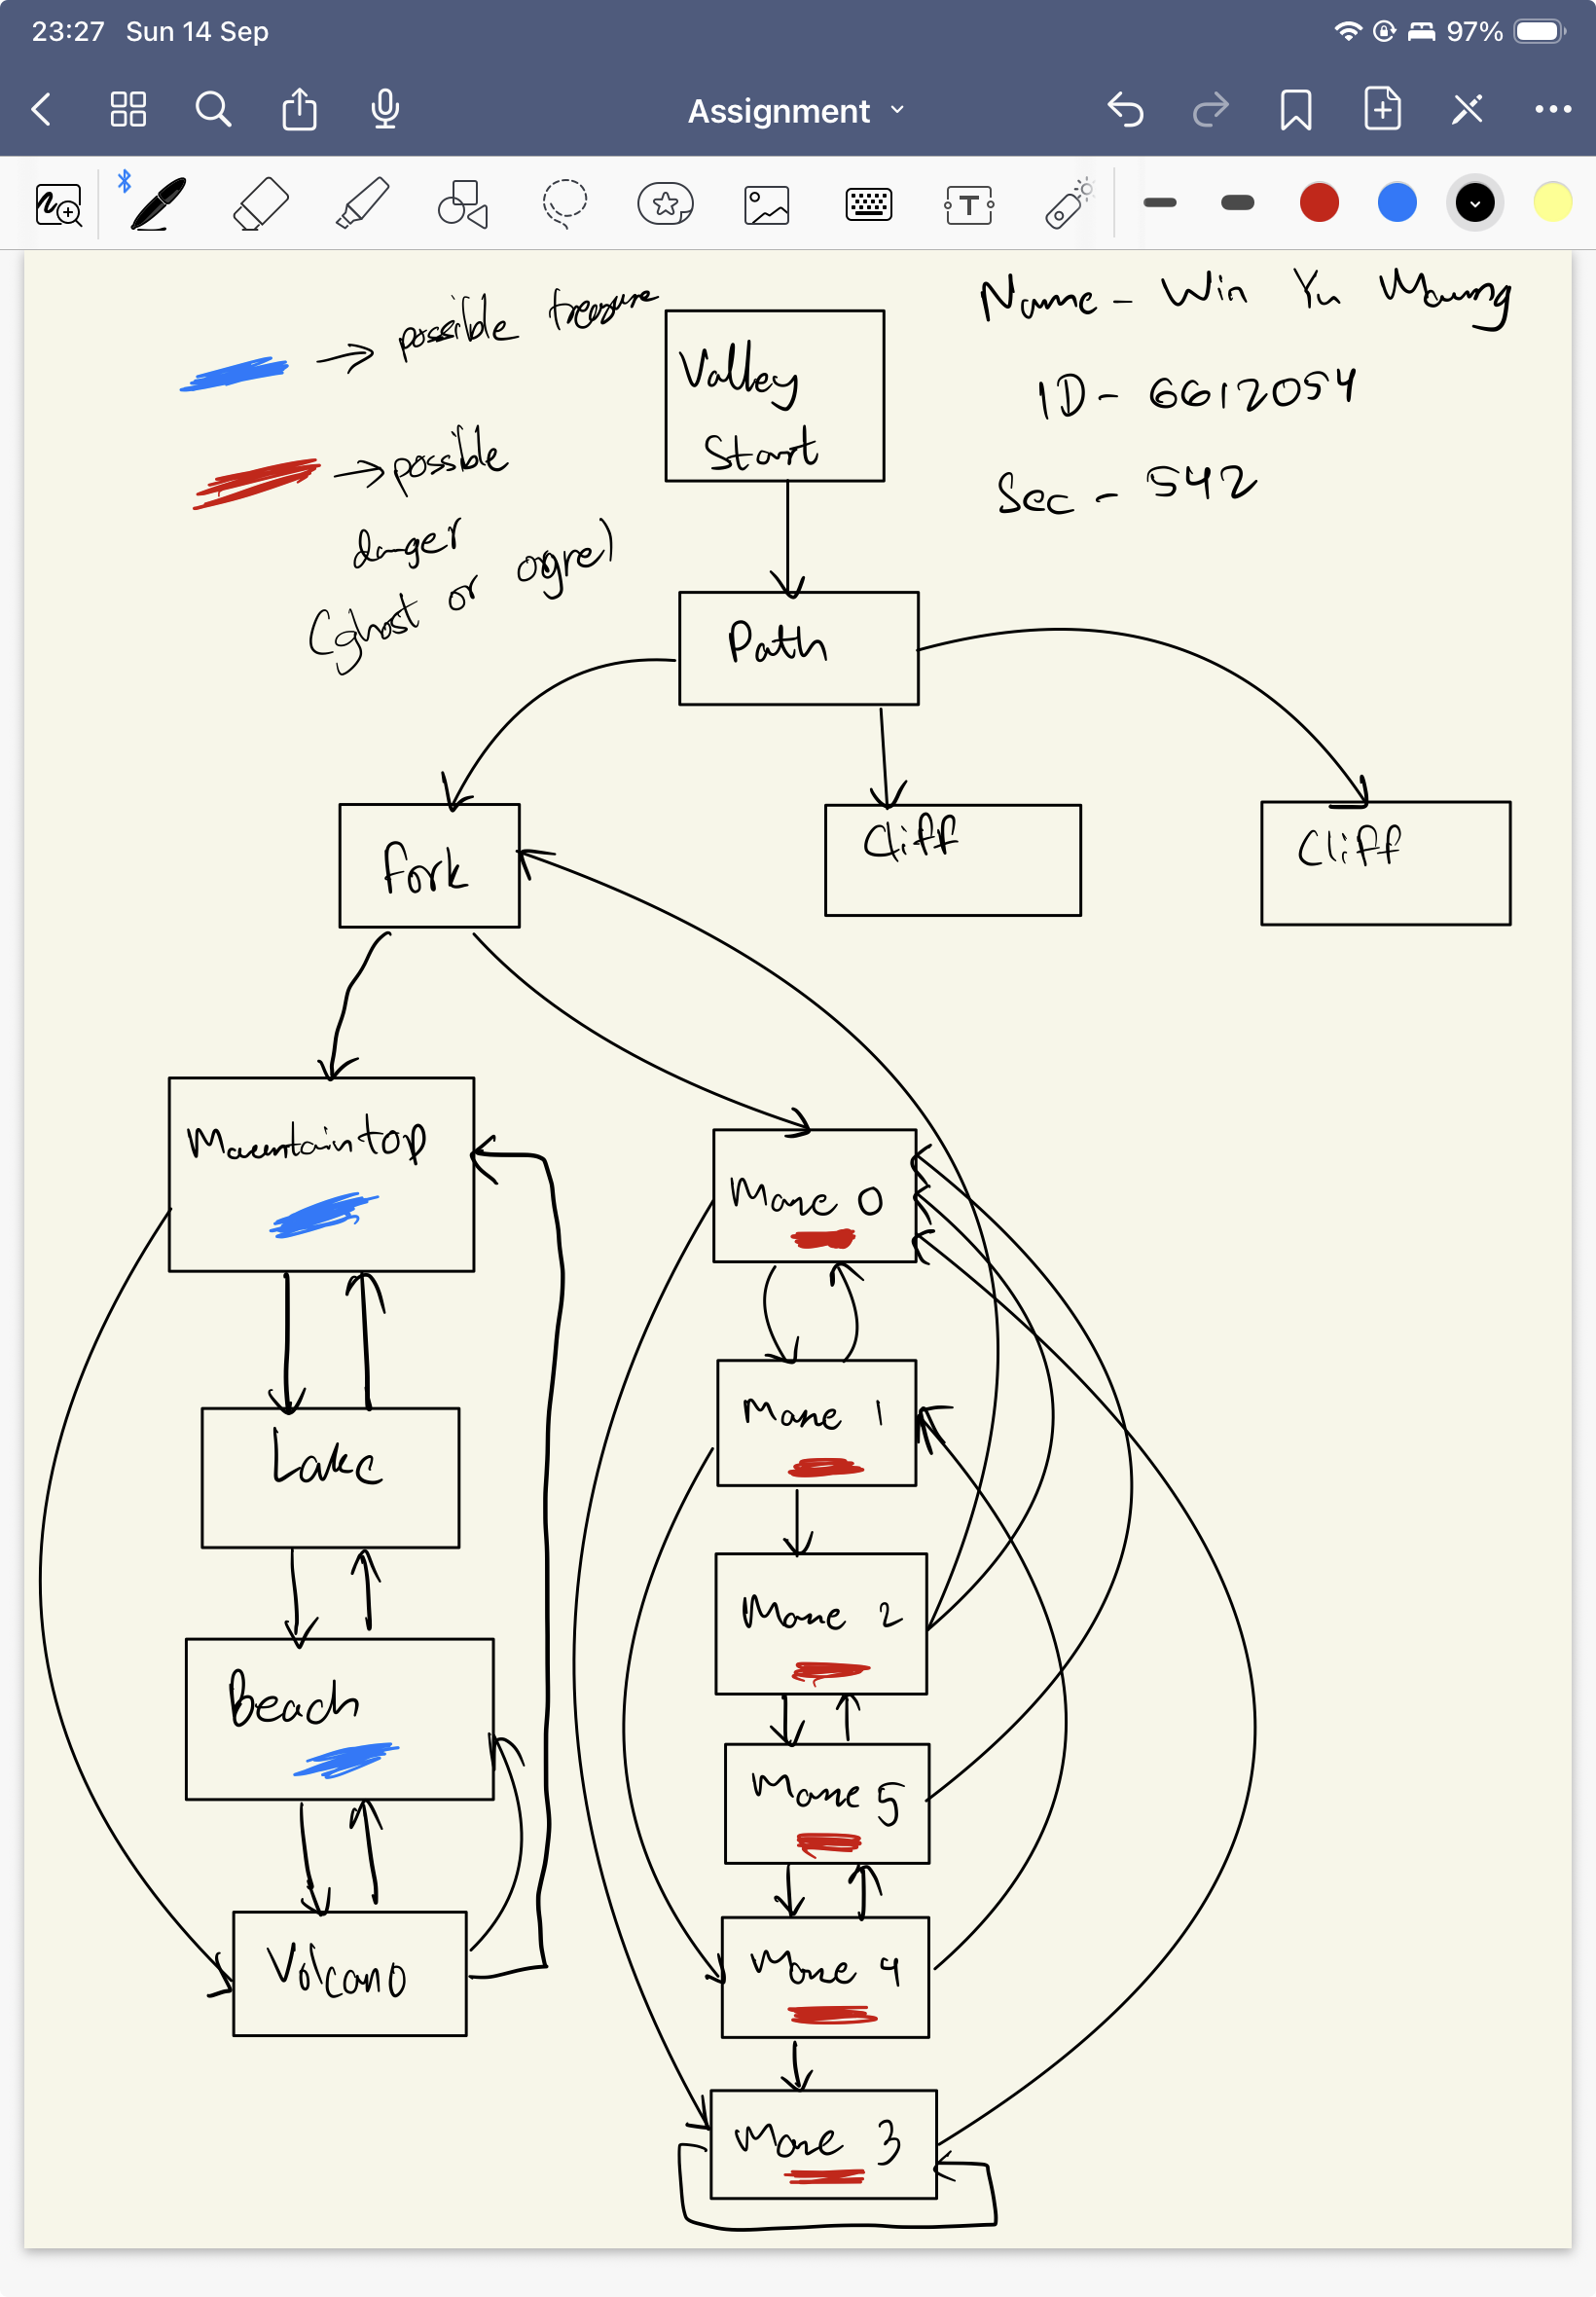 23:27 Sun 14 Sep
97%
Assignment
T
possible treasure
possible
danger
(ghost or ogre)
Name - Win Yu Maung
ID - 6612054
Sec - 542
Valley
Start
Path
Fork
Cliff
Cliff
Mountaintop
Maze 0
Lake
Maze 1
Beach
Maze 2
Maze 5
Volcano
Maze 4
Maze 3